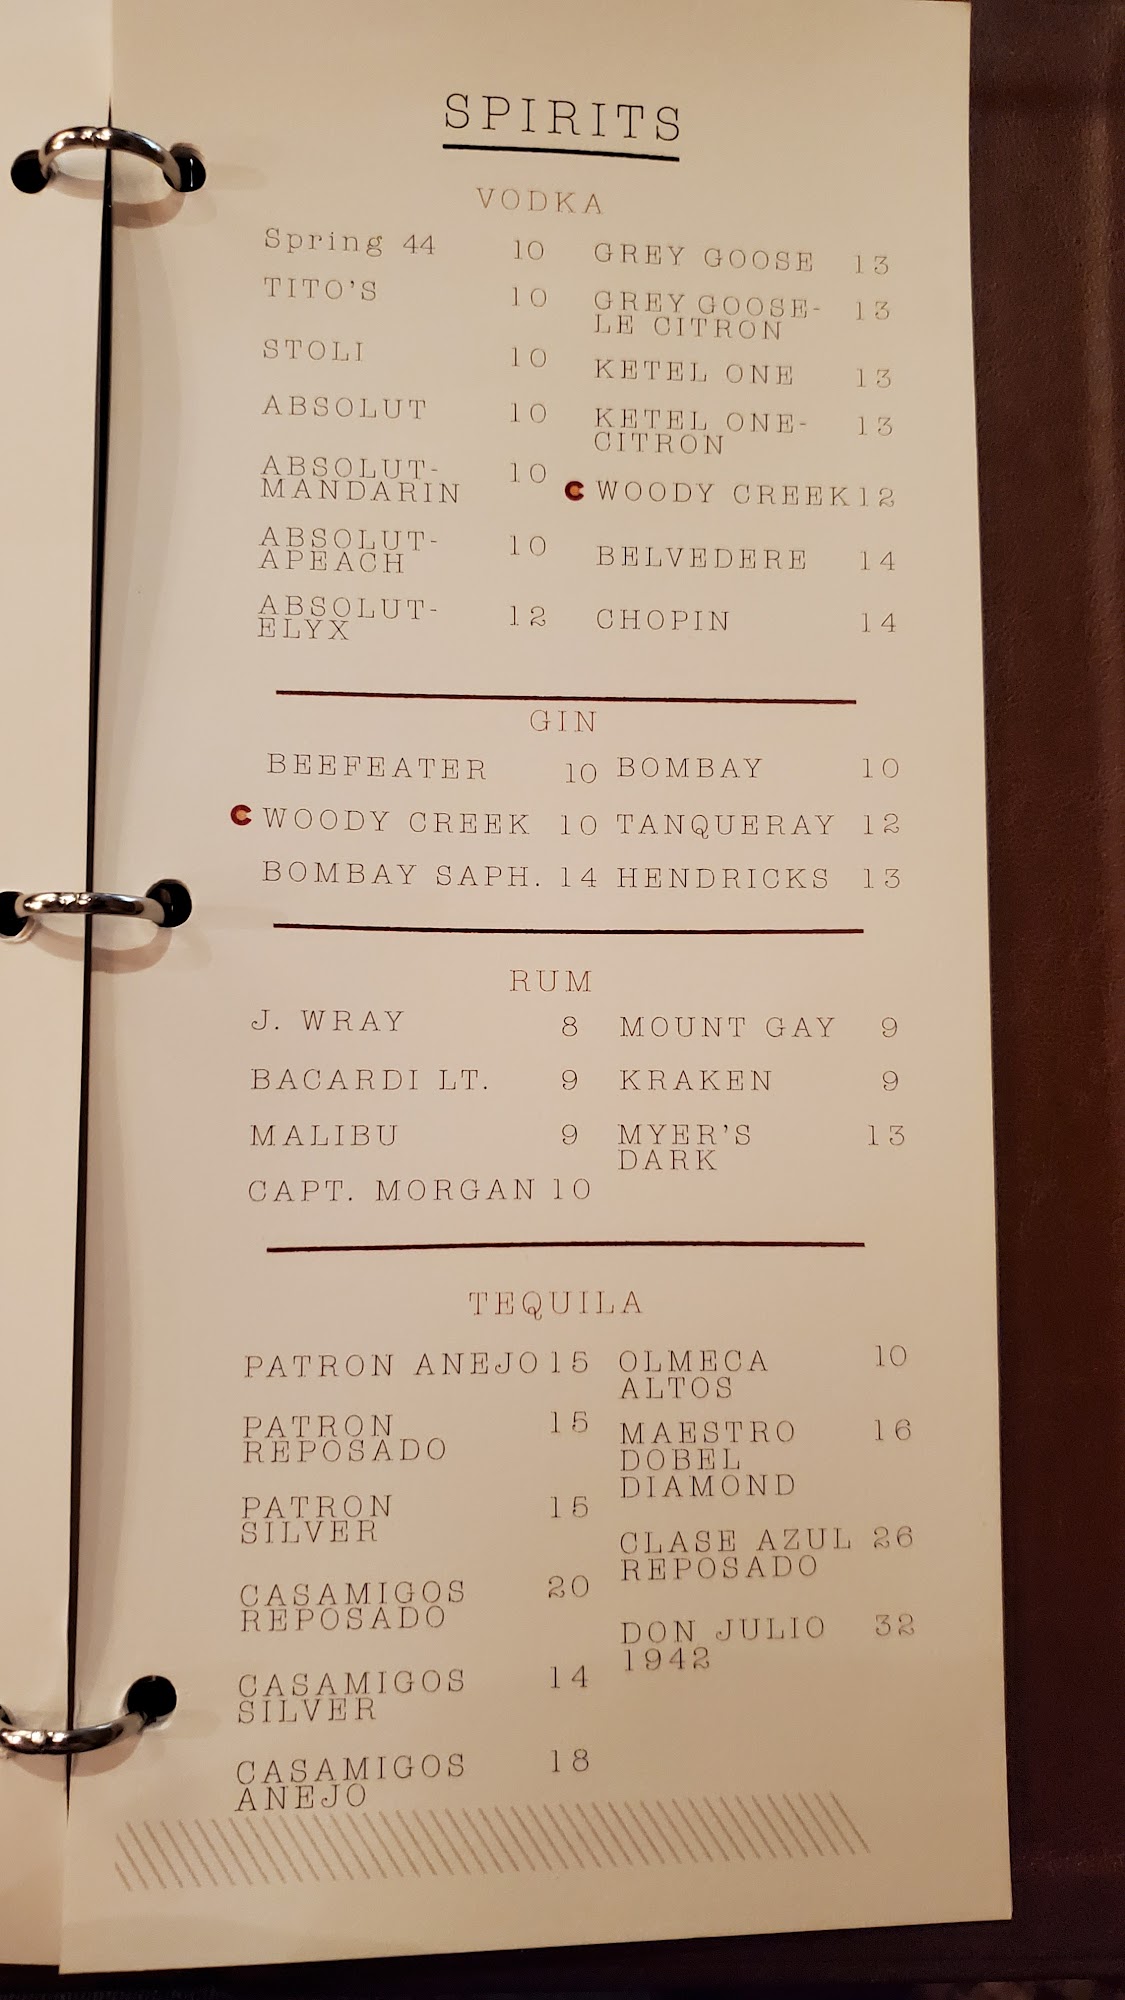 SPIRITS
VODKA
Spring 44 10
TITO'S 10
STOLI 10
ABSOLUT 10
ABSOLUT- 10
MANDARIN
ABSOLUT- 10
APEACH
ABSOLUT- 12
ELYX
GREY GOOSE 13
GREY GOOSE- 13
LE CITRON
KETEL ONE 13
KETEL ONE- 13
CITRON
WOODY CREEK 12
BELVEDERE 14
CHOPIN 14
GIN
BEEFEATER 10
WOODY CREEK 10
BOMBAY SAPH. 14
BOMBAY 10
TANQUERAY 12
HENDRICKS 13
RUM
J. WRAY 8
BACARDI LT. 9
MALIBU 9
CAPT. MORGAN 10
MOUNT GAY 9
KRAKEN 9
MYER'S 13
DARK
TEQUILA
PATRON ANEJO 15
PATRON 15
REPOSADO
PATRON 15
SILVER
CASAMIGOS 20
REPOSADO
CASAMIGOS 14
SILVER
CASAMIGOS 18
ANEJO
OLMECA 10
ALTOS
MAESTRO 16
DOBEL
DIAMOND
CLASE AZUL 26
REPOSADO
DON JULIO 32
1942